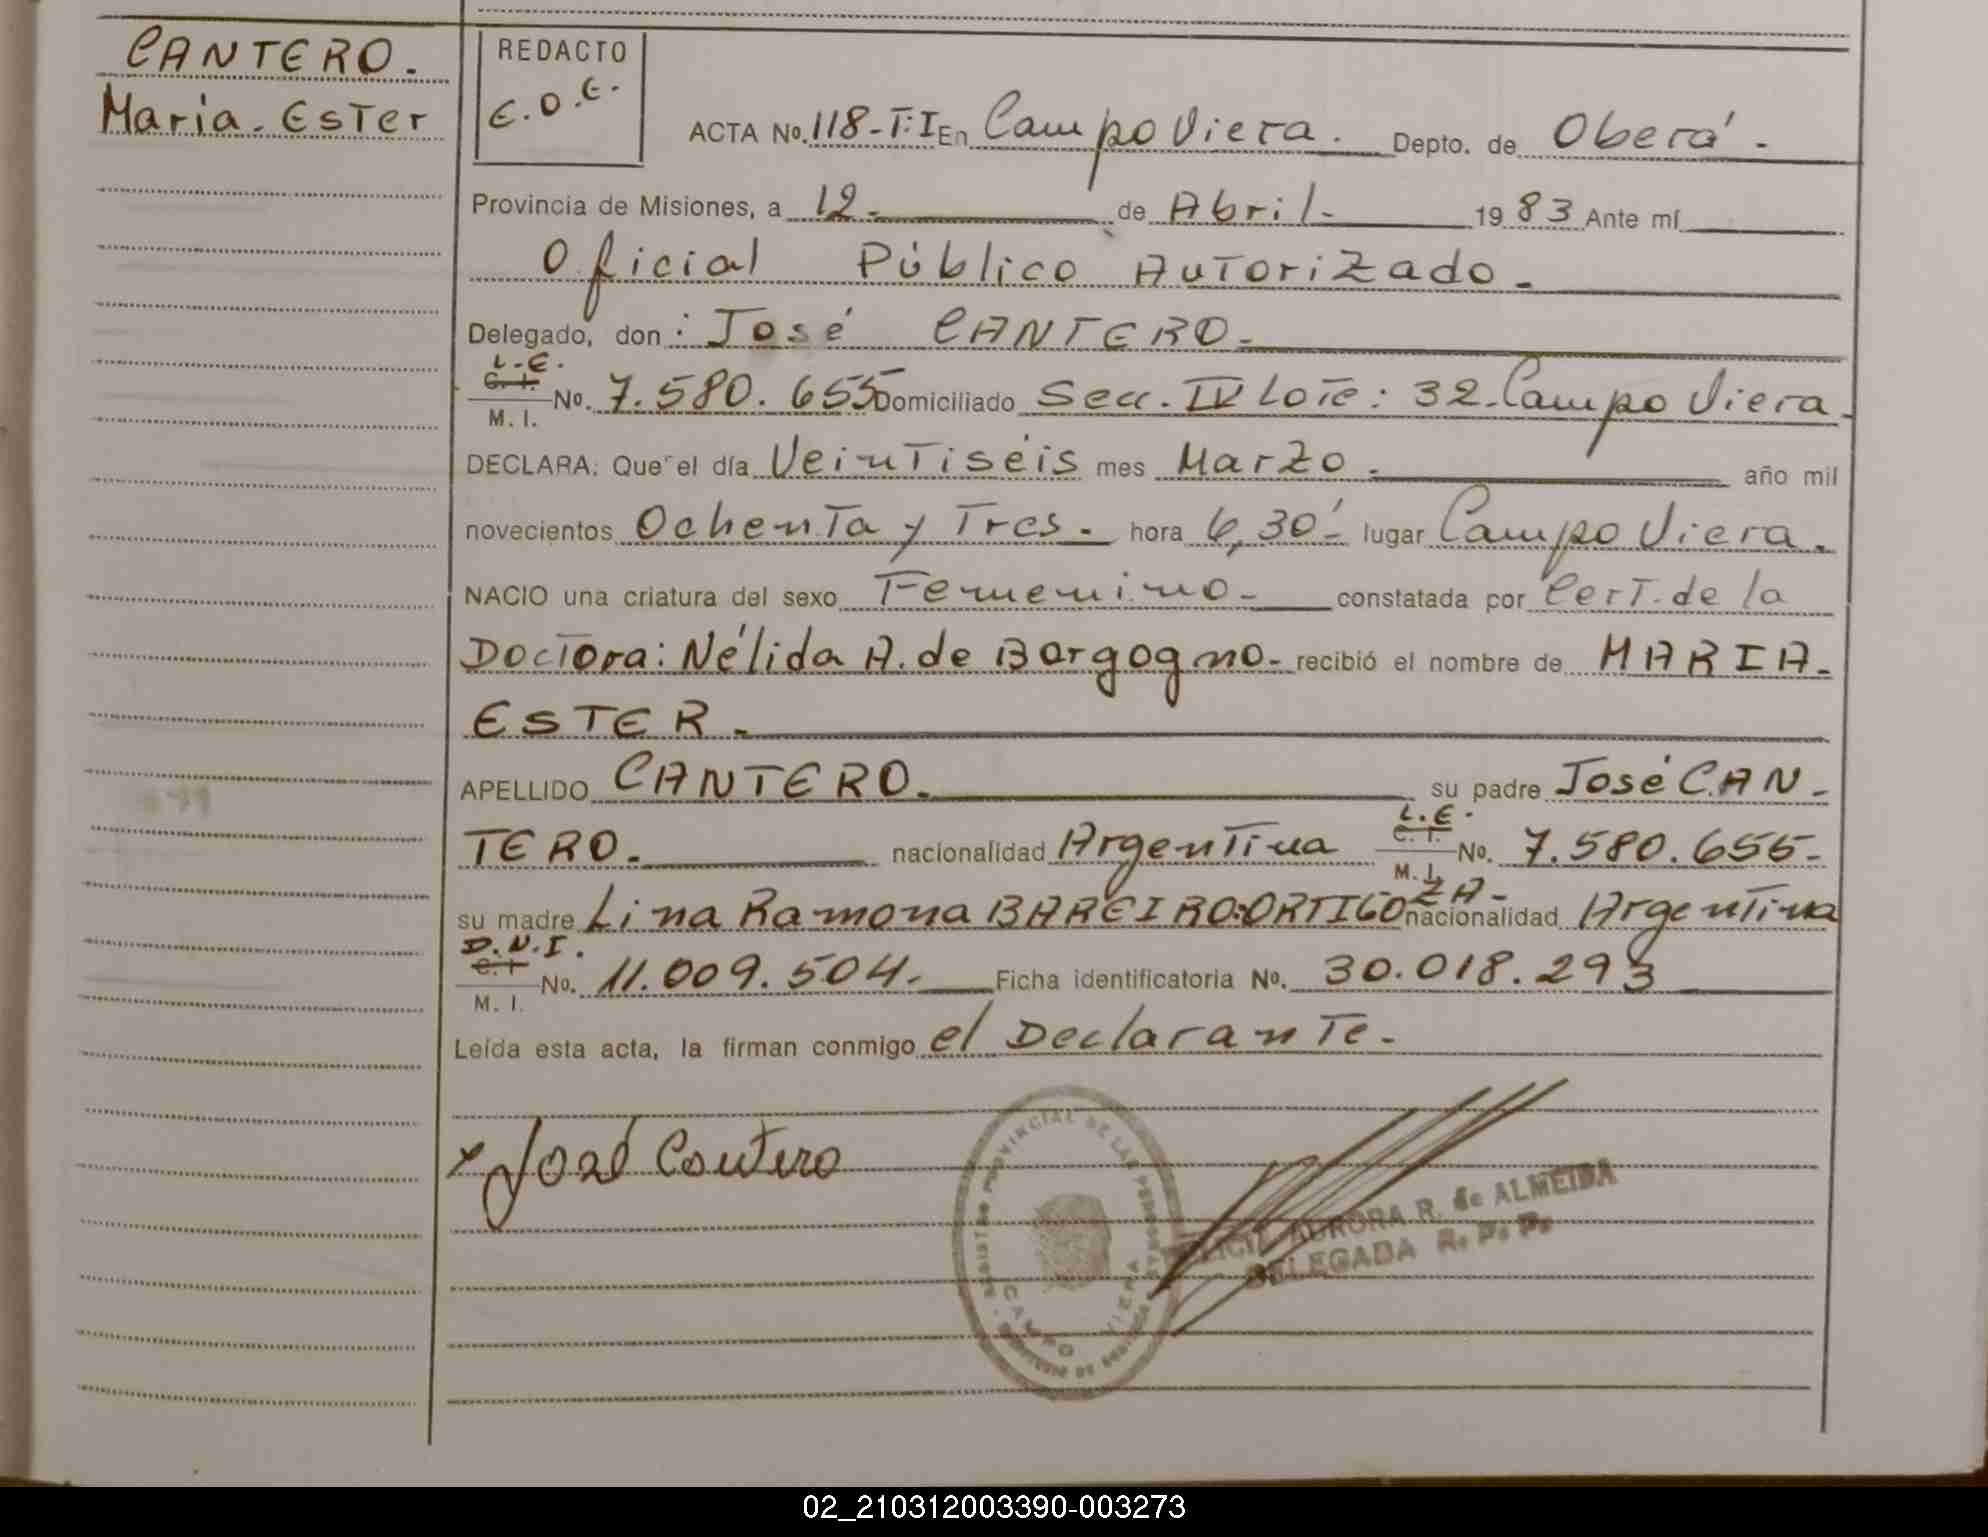 CANTERO.
Maria. Ester
REDACTO
E.D.E.
ACTA No. 118-T:I En Campo Viera. Depto. de Oberá-
Provincia de Misiones, a 12- de Abril- 1983 Ante mí
Oficial Público Autorizado-
Delegado, don: José CANTERO-
L.E.
C. I.
M. I.
No. 7.580.655 Domiciliado Secc. IV Lote: 32. Campo Viera.
DECLARA: Que el día Veintiséis mes Marzo. año mil
novecientos Ochenta y Tres. hora 6,30'- lugar Campo Viera.
NACIO una criatura del sexo Femenino- constatada por Cert. de la
Doctora: Nélida A. de Borgogno- recibió el nombre de MARIA-
ESTER-
APELLIDO CANTERO. su padre José CAN-
TERO. nacionalidad Argentina
L.E.
C. I.
M. I.
No. 7.580.655-
su madre Lina Ramona BAREIRO:ORTIGOZA- nacionalidad Argentina
D.N.I.
C. I
M. I.
No. 11.009.504- Ficha identificatoria No. 30.018.293
Leída esta acta, la firman conmigo el Declarante-
x José Cantero
REGISTRO PROVINCIAL DE LAS PERSONAS
CAMPO VIERA
AURORA R. de ALMEIDA
DELEGADA R. P. P.
02_210312003390-003273